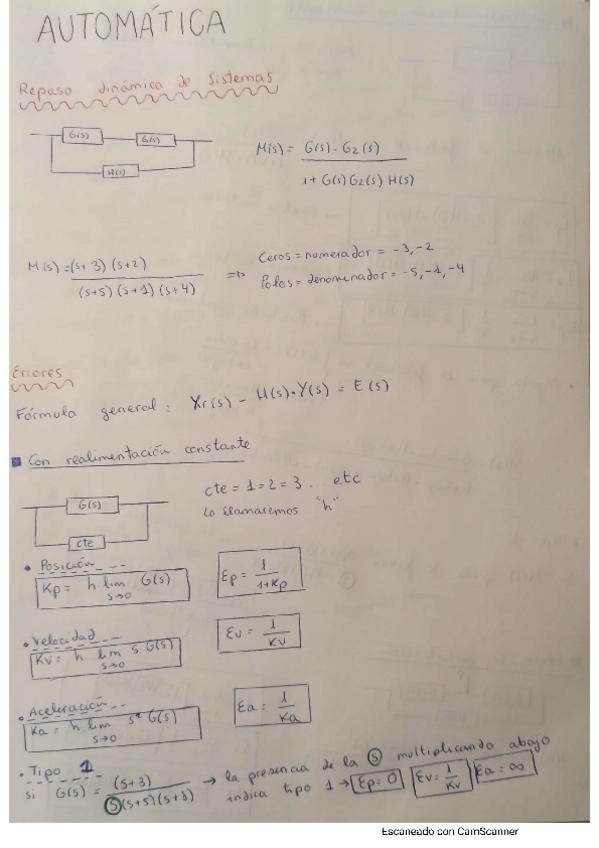 AUTOMÁTICA
Repaso dinámica de Sistemas
G(s) G(s)
H(s)
M(s) = G(s) · G2(s)
1 + G(s) G2(s) H(s)
M(s) = (s+3) (s+2)
(s+5) (s+1) (s+4)
=> Ceros = numerador = -3, -2
Polos = denominador = -5, -1, -4
Errores
Fórmula general: Xr(s) - H(s) · Y(s) = E(s)
Con realimentación constante
G(s)
cte
cte = 1 = 2 = 3 . etc
lo llamaremos "h"
• Posición
Kp = h lim G(s)
s→0
Ep = 1
1+Kp
• Velocidad
Kv = h lim s G(s)
s→0
Ev = 1
Kv
• Aceleración
Ka = h lim s² G(s)
s→0
Ea = 1
Ka
• Tipo 1
si G(s) = (s+3)
s(s+5)(s+3)
→ la presencia de la s multiplicando abajo
indica tipo 1 → Ep = 0 Ev = 1/Kv Ea = ∞
Escaneado con CamScanner